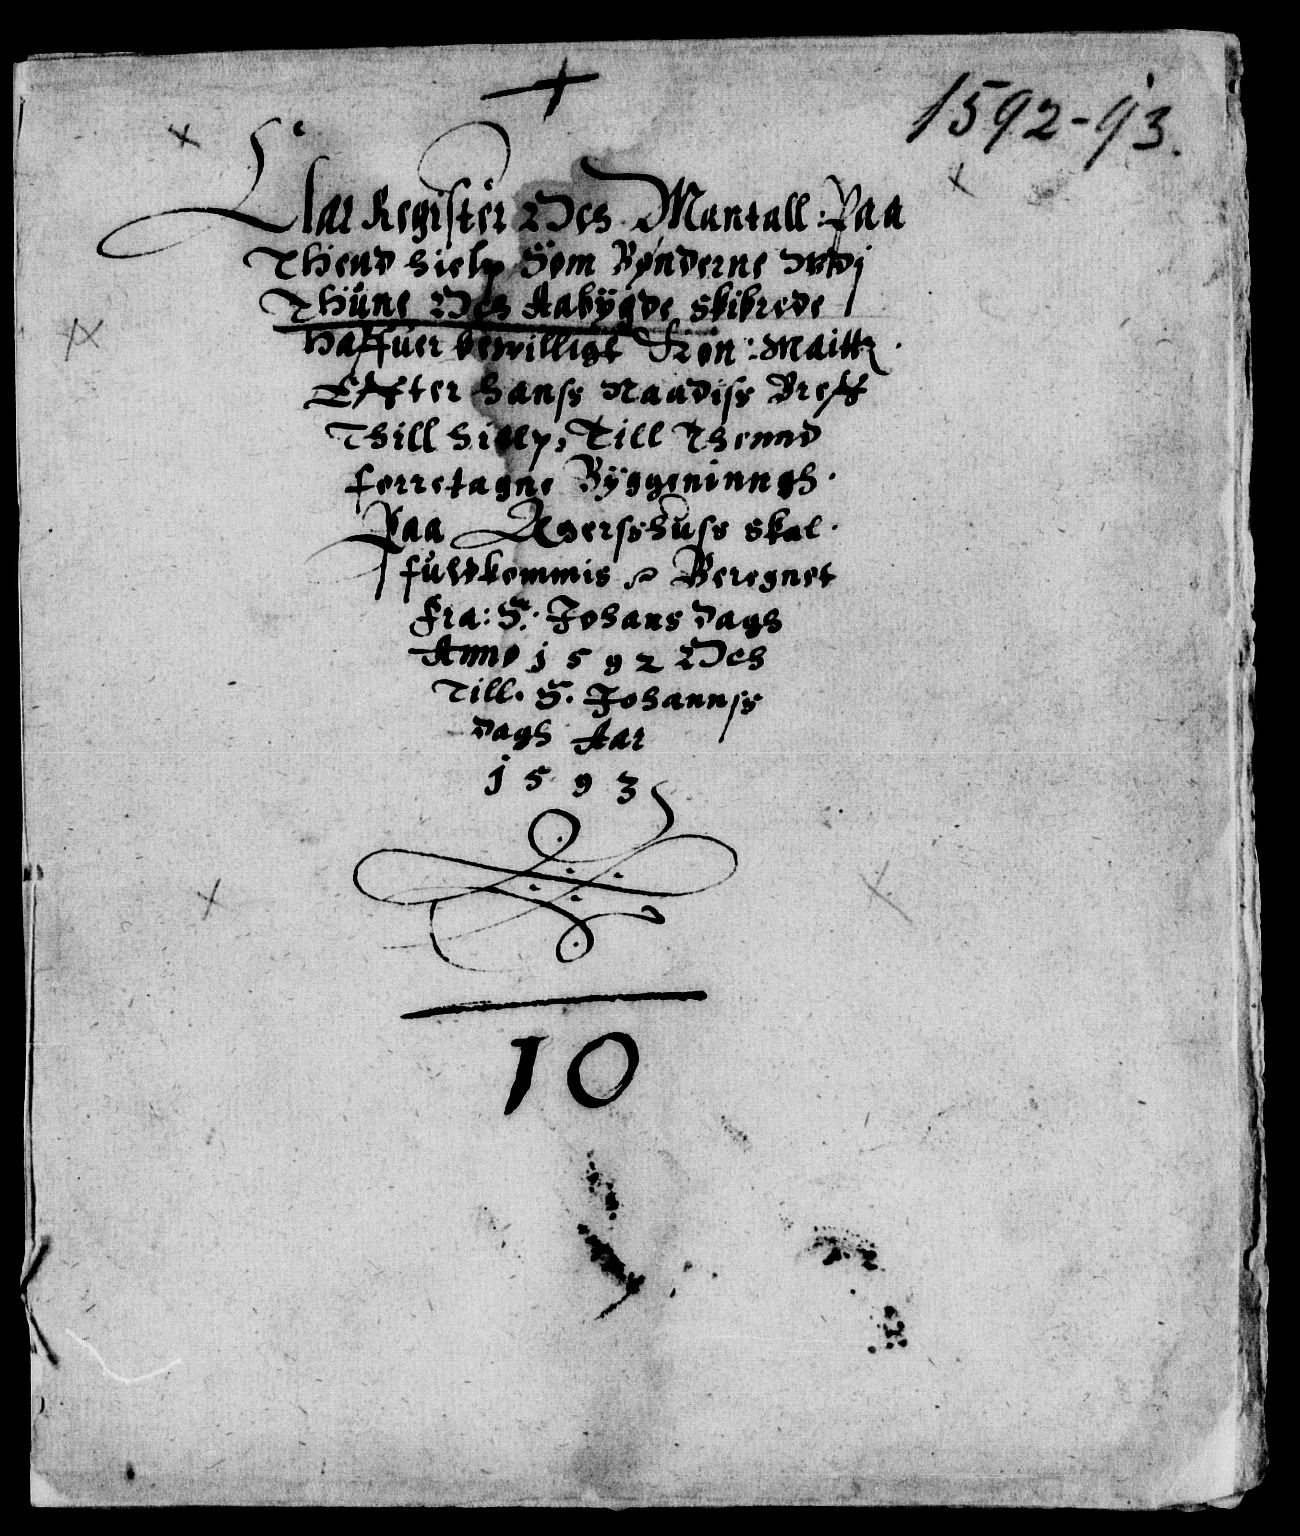 1592-93.
Klar Register Och Mantall Paa
Thend hielp Som Bønderne Vdj
Thüne Och Aabÿgde skibrede
haffuer bewilligt Kon: Maittz.
Effter hanss Naadiss Breff
Thill hielp, Till Thennd
forretagne Bÿggeninngh.
Paa Agersshuss skal.
fuldkommis Beregnet
Fra: S. Johans dagh
Anno 1592 Och
Till. S. Johannss
dagh Aar
1593
10